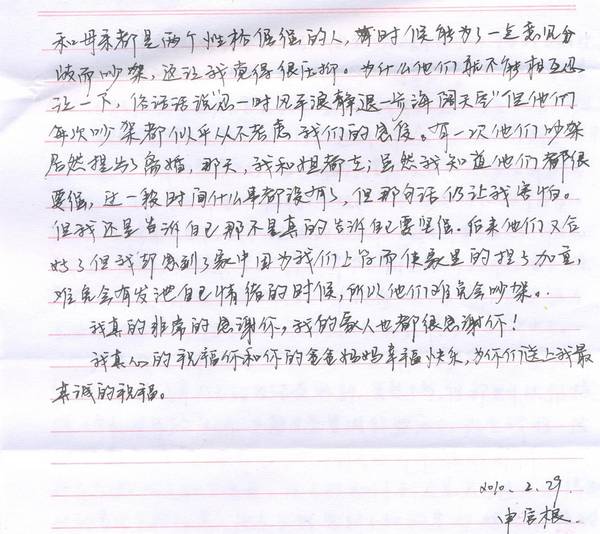 和母亲都是两个性格倔强的人,有时候能为了一点意见分
歧而吵架,这让我觉得很压抑。为什么他们就不能相互忍
让一下,俗话话说"忍一时风平浪静退一步海阔天空"但他们
每次吵架都似乎从不考虑我们的感受。有一次他们吵架
居然提出了离婚,那天,我和姐都在;虽然我知道他们都很
要强,过一段时间什么事都没有了,但那句话仍让我害怕。
但我还是告诉自己那不是真的告诉自己要坚强。后来他们又合
好了但我却感到了家中因为我们上学而使家里的担子加重,
难免会有发泄自己情绪的时候,所以他们难免会吵架。.
我真的非常的感谢你,我的家人也都很感谢你!
我真心的祝福你和你的爸爸妈妈幸福快乐,为你们送上我最
真诚的祝福。
2010.2.29.
申 根